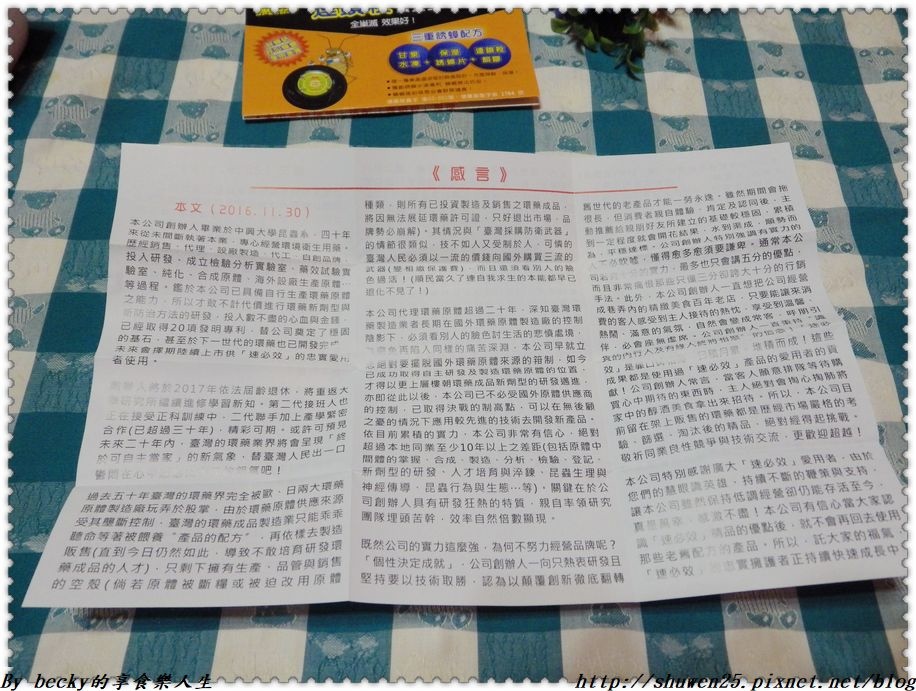 全巢滅 效果好！
三重誘蟑配方
《感言》
本文（2016.11.30）
本公司創辦人畢業於中興大學昆蟲系，四十年
來從未間斷執著本業，專心經營環境衛生用藥，
歷經銷售、代理、設廠製造、代工、自創品牌、
投入研發、成立檢驗分析實驗室、藥效試驗實
驗室、純化、合成原體、海外設廠生產原體…
等過程，鑑於本公司已具備自行生產環藥原體
之能力，所以才敢不計代價進行環藥新劑型與
新防治方法的研發，投入數不盡的心血與金錢，
已經取得20項發明專利，替公司奠定了穩固
的基石，甚至於下一世代的環藥也已開發完
未來會擇期陸續上市供「速必效」的忠實愛用
者使用。
創辦人將於2017年依法屆齡退休，將重返大
學研究所繼續進修學習新知。第二代接班人也
正在接受正科訓練中，二代聯手加上產學緊密
合作(已超過三十年)，精彩可期。或許可預見
未來二十年內，臺灣的環藥業界將會呈現「終
於可自主當家」的新氣象，替臺灣人民出一口
過去五十年臺灣的環藥界完全被歐、日兩大環藥
原體製造廠玩弄於股掌，由於環藥原體供應來源
受其壟斷控制，臺灣的環藥成品製造業只能乖乖
聽命等著被餵養“產品的配方”，再依樣去製造
販售(直到今日仍然如此，導致不敢培育研發環
藥成品的人才)，只剩下擁有生產、品管與銷售
的空殼(倘若原體被斷糧或被迫改用原體
種類，則所有已投資製造及銷售之環藥成品，
將因無法展延環藥許可證，只好退出市場，品
牌勢必崩解)。其情況與「臺灣採購防衛武器」
的情節很類似，技不如人又受制於人，可憐的
臺灣人民必須以一流的價錢向國外購買三流的
武器(變相繳保護費)，而且還須看別人的臉
色過活！(順民當久了連自我求生的本能都早已
退化不見了！)
本公司代理環藥原體超過二十年，深知臺灣環
藥製造業者長期在國外環藥原體製造廠的控制
陰影下，必須看別人的臉色討生活的悲慘處境，
為避免再陷入同樣的痛苦深淵，本公司早就立
志絕對要擺脫國外環藥原體來源的箝制。如今
已成功取得自主研發及製造環藥原體的位置，
才得以更上層樓朝環藥成品新劑型的研發邁進，
亦即從此以後，本公司已不必受國外原體供應商
的控制，已取得決戰的制高點，可以在無後顧
之憂的情況下應用較先進的技術去開發新產品。
依目前累積的實力，本公司非常有信心，絕對
超過本地同業至少10年以上之差距(包括原體中
間體的掌握、合成、製造、分析、檢驗、登記、
新劑型的研發、人才培育與淬鍊、昆蟲生理與
神經傳導、昆蟲行為與生態…等)。關鍵在於公
司創辦人具有研發狂熱的特質，親自率領研究
團隊埋頭苦幹，效率自然倍數顯現。
既然公司的實力這麼強，為何不努力經營品牌呢？
「個性決定成就」，公司創辦人一向只熱衷研發且
堅持要以技術取勝，認為以顛覆創新徹底翻轉
舊世代的老產品才能一勞永逸。雖然期間會拖
很長，但消費者親自體驗，肯定及認同後，主
動推薦給親朋好友所建立的基礎較穩固，累積
到一定程度就會開花結果，水到渠成，順勢而
為，平穩達標。公司創辦人特別強調有實力的
人必吹噓，懂得愈多愈須要謙卑。通常本公
司若有十分的實力，最多也只會講五分的優點，
而且非常痛恨那些只懂三分卻誇大十分的行銷
手法。此外，本公司創辦人一直想把公司經營
成巷弄內的精緻美食百年老店，只要能讓來消
費的客人感受到主人接待的熱忱，享受到溫馨、
熱鬧、滿意的氣氛，自然會變成常客，呼朋引
伴，必會座無虛席。
成果都是使用過「速必效」產品的愛用者的貢
獻！公司創辦人常言，當客人願意排隊等待購
買心中期待的東西時，主人絕對會掏心掏肺將
家中的醇酒美食拿出來招待。所以，本公司目
前留在架上販售的環藥都是歷經市場嚴格的考
驗、篩選、淘汰後的精品，絕對經得起挑戰。
敬祈同業良性競爭與技術交流，更歡迎超越！
本公司特別感謝廣大「速必效」愛用者，由於
您們的慧眼識英雄，持續不斷的鞭策與支持，
讓本公司雖然保持低調經營卻仍能存活至今，
真是萬幸，感激不盡！本公司有信心當大家認
識「速必效」精品的優點後，就不會再回去使用
那些老舊配方的產品。所以，託大家的福氣
「速必效」的忠實擁護者正持續快速成長中
By becky的享食樂人生
http://shuwen25.pixnet.net/blog